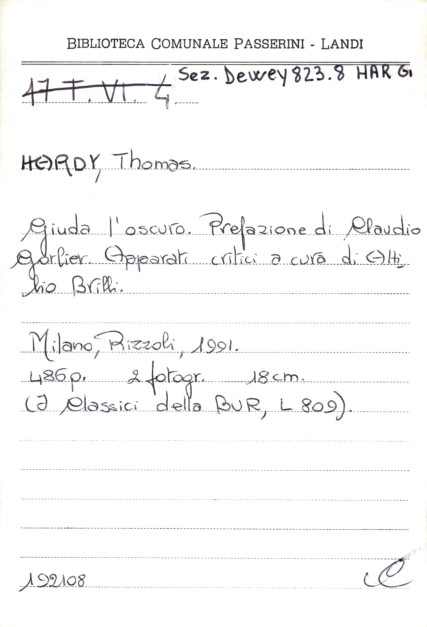 BIBLIOTECA COMUNALE PASSERINI - LANDI
Sez. Dewey 823.8 HAR Gi
47 T. VI. 4
HARDY, Thomas.
Giuda l'oscuro. Prefazione di Claudio
Gorlier. Apparati critici a cura di Atti
lio Brilli.
Milano, Rizzoli, 1991.
486p. 2 fotogr. 18cm.
(I Classici della BUR, L 809).
192108